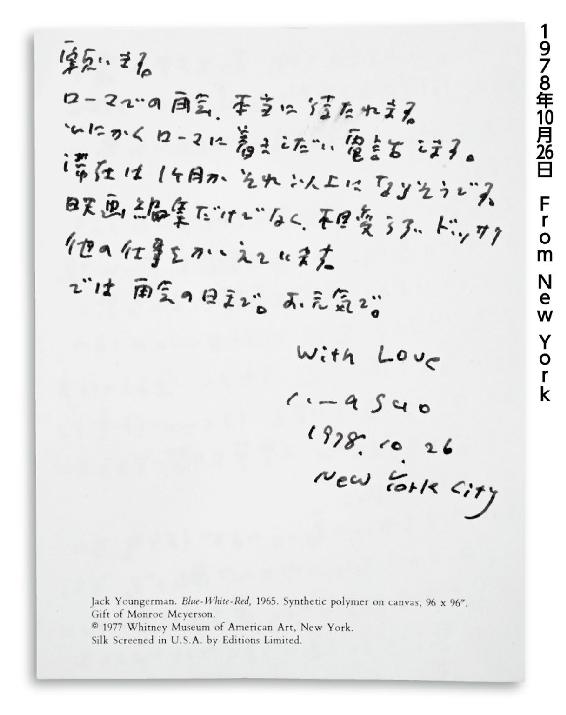 願います。
ローマでの再会、本当に待たれます。
とにかくローマに着きしだい電話します。
滞在は1ヶ月かそれ以上になりそうです。
映画編集だけでなく、相変らず、ドッサリ
他の仕事をかゝえています。
では再会の日まで。お元気で。
With Love
1978. 10. 26
New York City
Jack Youngerman. Blue-White-Red, 1965. Synthetic polymer on canvas, 96 x 96".
Gift of Monroe Meyerson.
© 1977 Whitney Museum of American Art, New York.
Silk Screened in U.S.A. by Editions Limited.
1978年10月26日 From New York